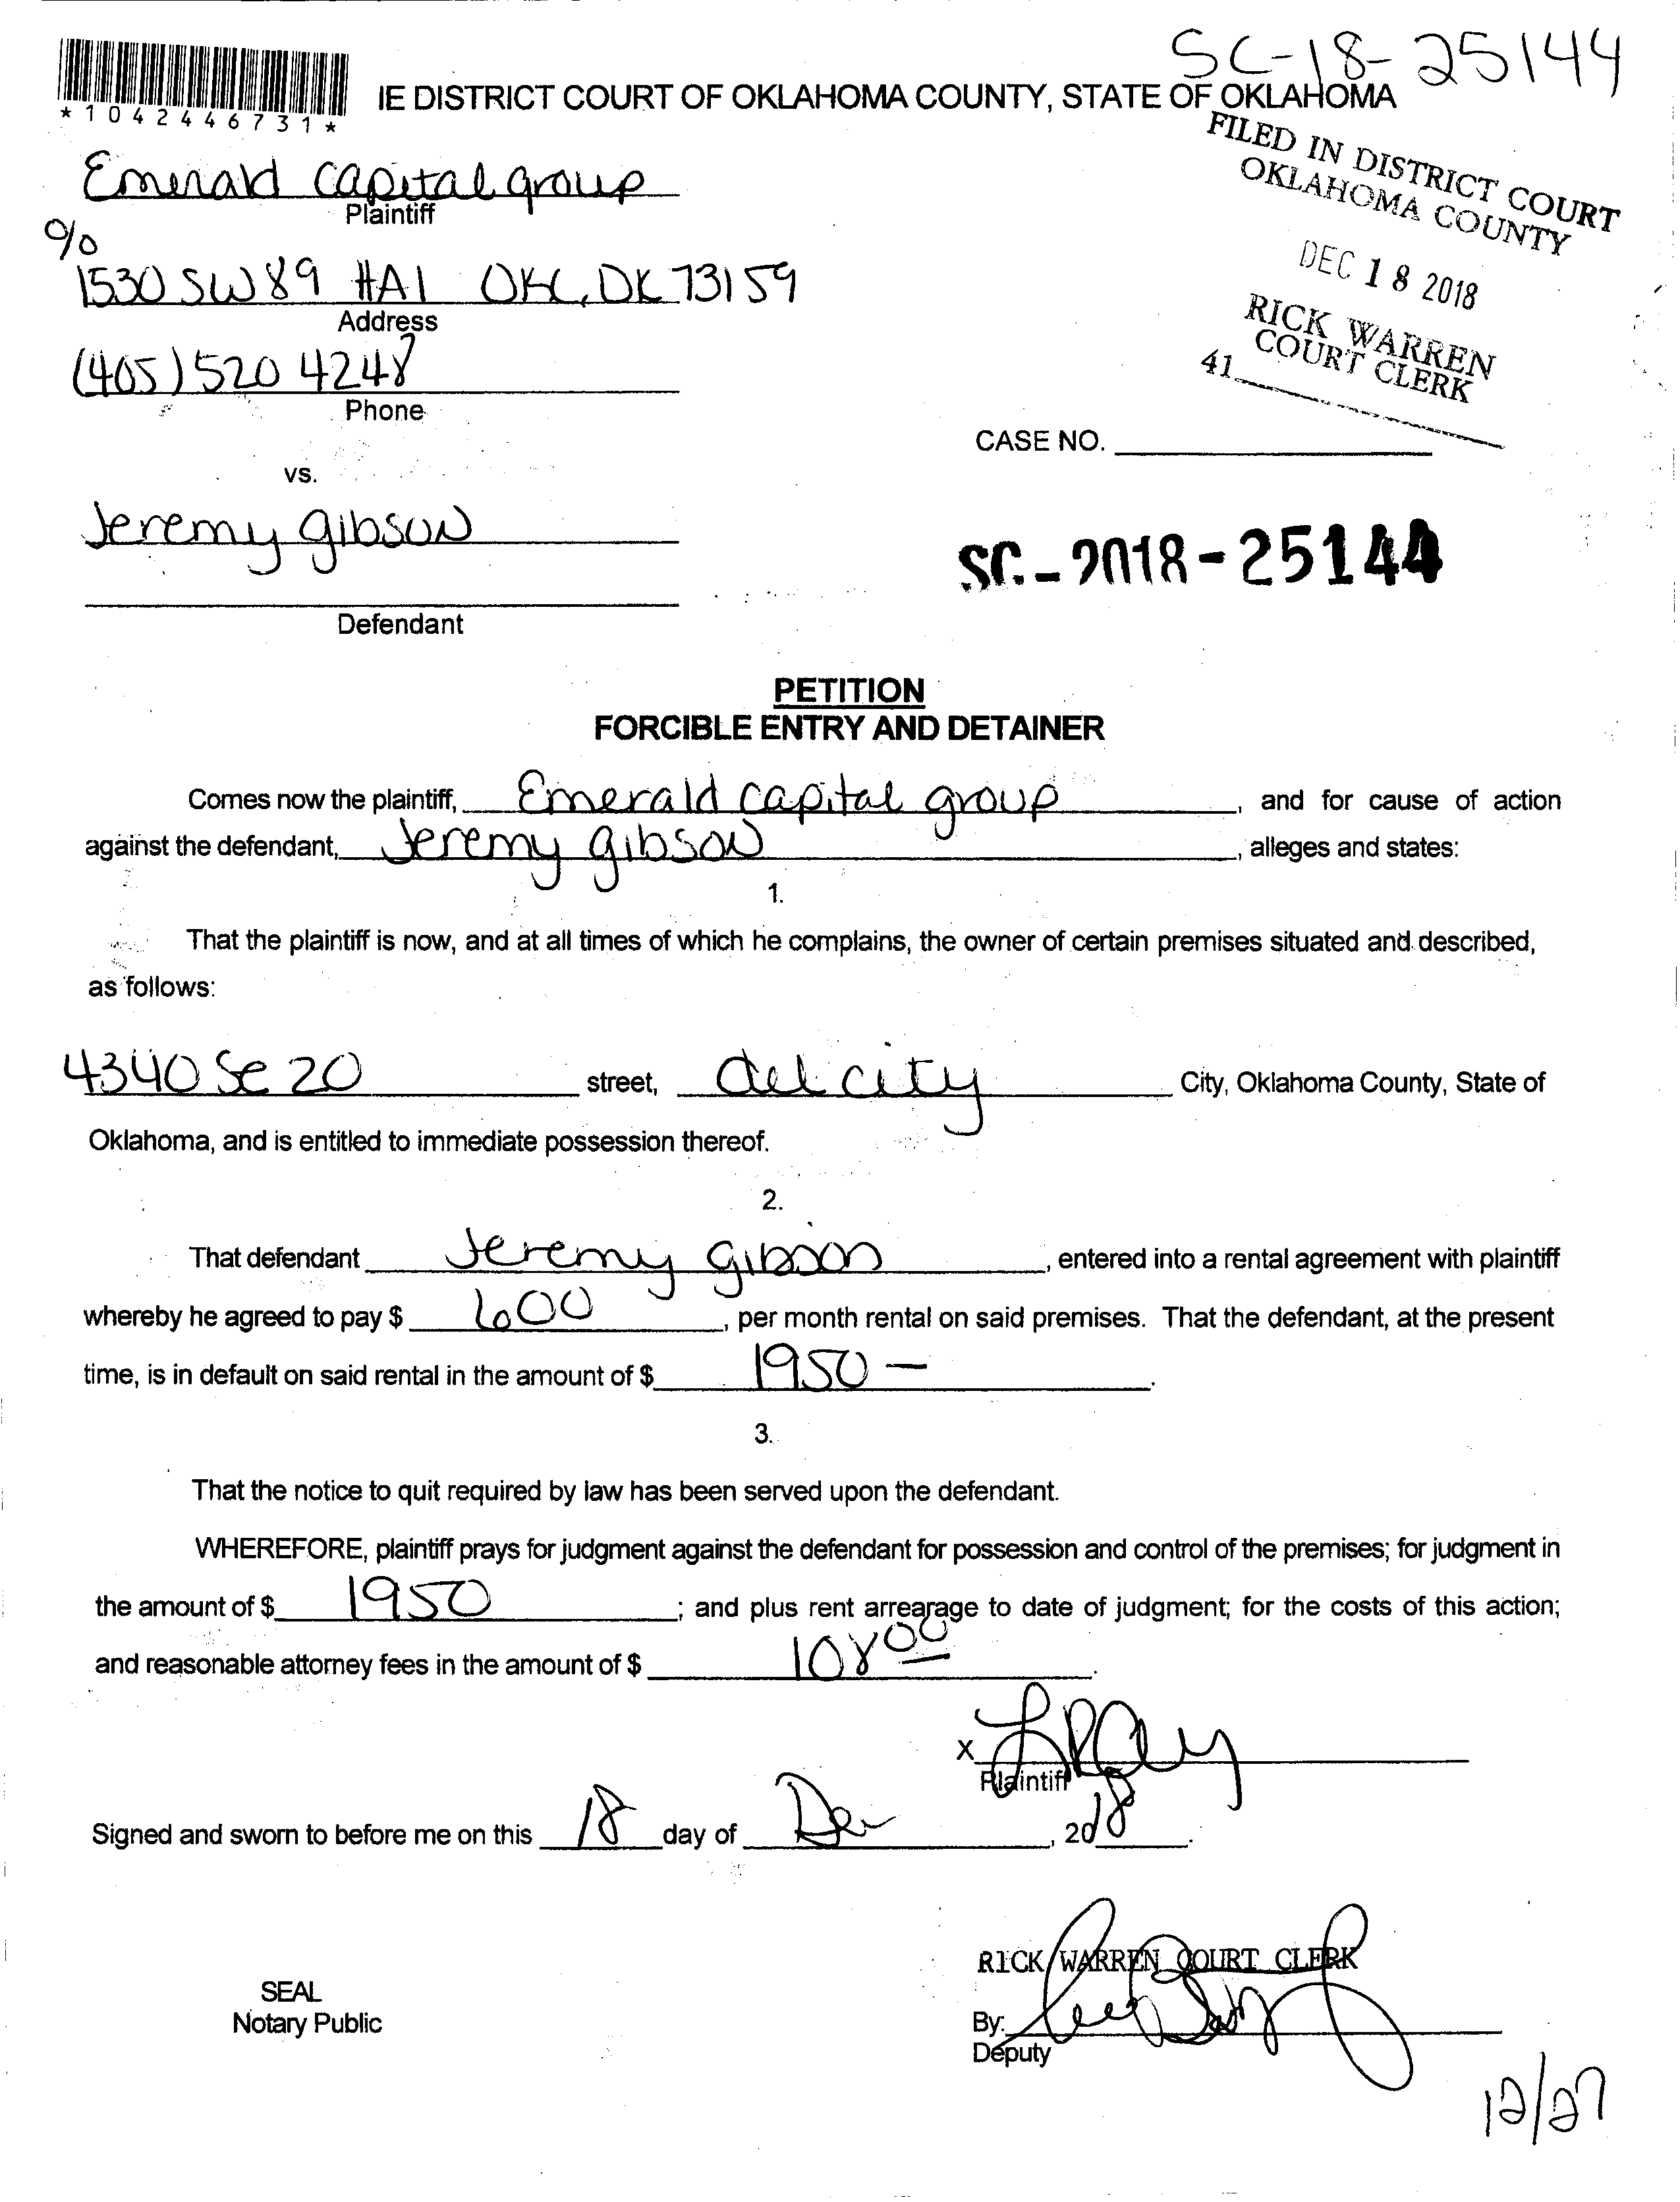 SC-18-25144
*1042446731*
IE DISTRICT COURT OF OKLAHOMA COUNTY, STATE OF OKLAHOMA
FILED IN DISTRICT COURT
OKLAHOMA COUNTY
DEC 18 2018
RICK WARREN
COURT CLERK
41
Emerald capital group
Plaintiff
%
1530 SW 89 #A1 OKC, OK 73159
Address
(405) 520 4248
Phone
CASE NO.
vs.
Jeremy gibson
SC-2018-25144
Defendant
PETITION
FORCIBLE ENTRY AND DETAINER
Comes now the plaintiff, Emerald capital group, and for cause of action
against the defendant, Jeremy gibson, alleges and states:
1.
That the plaintiff is now, and at all times of which he complains, the owner of certain premises situated and described,
as follows:
4340 Se 20 street, del city City, Oklahoma County, State of
Oklahoma, and is entitled to immediate possession thereof.
2.
That defendant Jeremy gibson, entered into a rental agreement with plaintiff
whereby he agreed to pay $ 600, per month rental on said premises. That the defendant, at the present
time, is in default on said rental in the amount of $ 1950 —.
3.
That the notice to quit required by law has been served upon the defendant.
WHEREFORE, plaintiff prays for judgment against the defendant for possession and control of the premises; for judgment in
the amount of $ 1950; and plus rent arrearage to date of judgment; for the costs of this action;
and reasonable attorney fees in the amount of $ 108 00.
X
Plaintiff
Signed and sworn to before me on this 18 day of Dec, 2018.
RICK WARREN COURT CLERK
SEAL
Notary Public
By:
Deputy
12/27